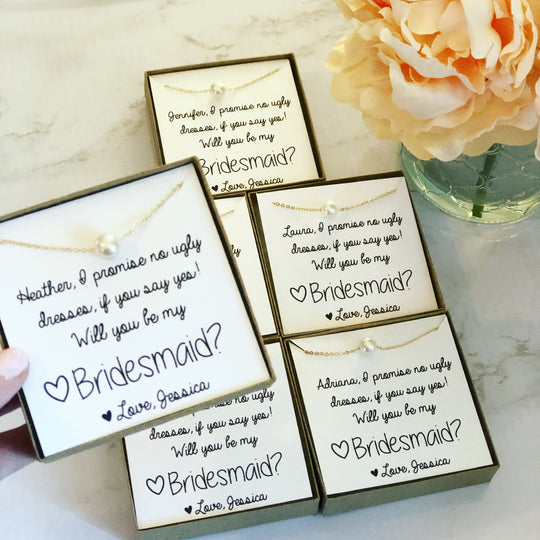 Jennifer, I promise no ugly
dresses, if you say yes!
Will you be my
Bridesmaid?
♥ Love, Jessica
Heather, I promise no ugly
dresses, if you say yes!
Will you be my
♡Bridesmaid?
♥ Love, Jessica
Laura, I promise no ugly
dresses, if you say yes!
Will you be my
♡Bridesmaid?
♥ Love, Jessica
Adriana, I promise no ugly
dresses, if you say yes!
Will you be my
♡Bridesmaid?
♥ Love, Jessica
no ugly
dresses, if you say yes!
Will you be my
♡Bridesmaid?
♥ Love, Jessica